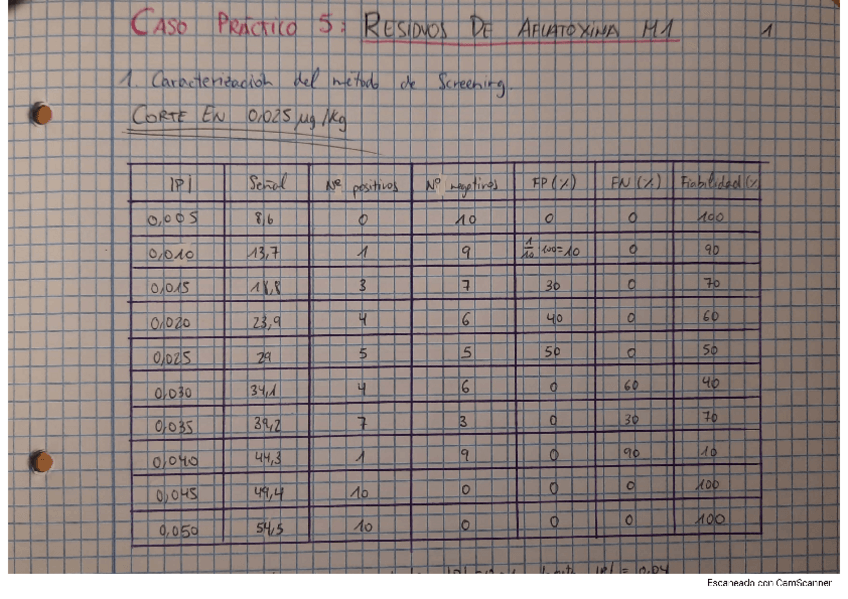 CASO PRÁCTICO 5: RESIDUOS DE AFLATOXINA M1 1
1. Caracterización del método de Screening.
CORTE EN 0,025 µg/kg
|P| Señal Nº positivos Nº negativos FP (%) FN (%) Fiabilidad (%)
0,005 8,6 0 10 0 0 100
0,010 13,7 1 9 1/10·100=10 0 90
0,015 18,8 3 7 30 0 70
0,020 23,9 4 6 40 0 60
0,025 29 5 5 50 0 50
0,030 34,1 4 6 0 60 40
0,035 39,2 7 3 0 30 70
0,040 44,3 1 9 0 90 10
0,045 49,4 10 0 0 0 100
0,050 54,5 10 0 0 0 100
|P| = 0,04
Escaneado con CamScanner